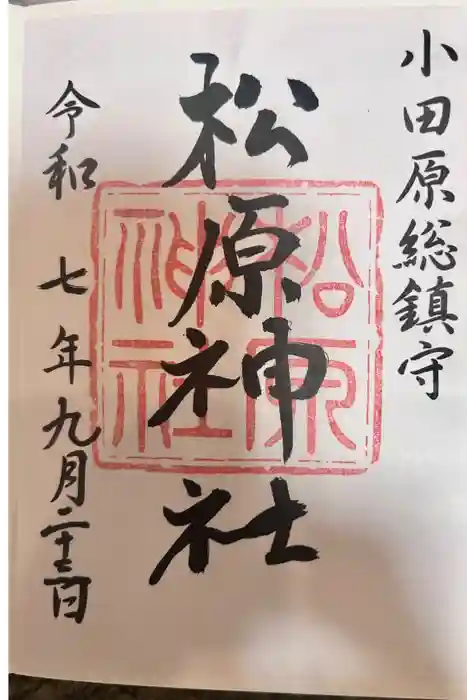 小田原総鎮守
松原神社
松原神社
令和 七年九月二十三日